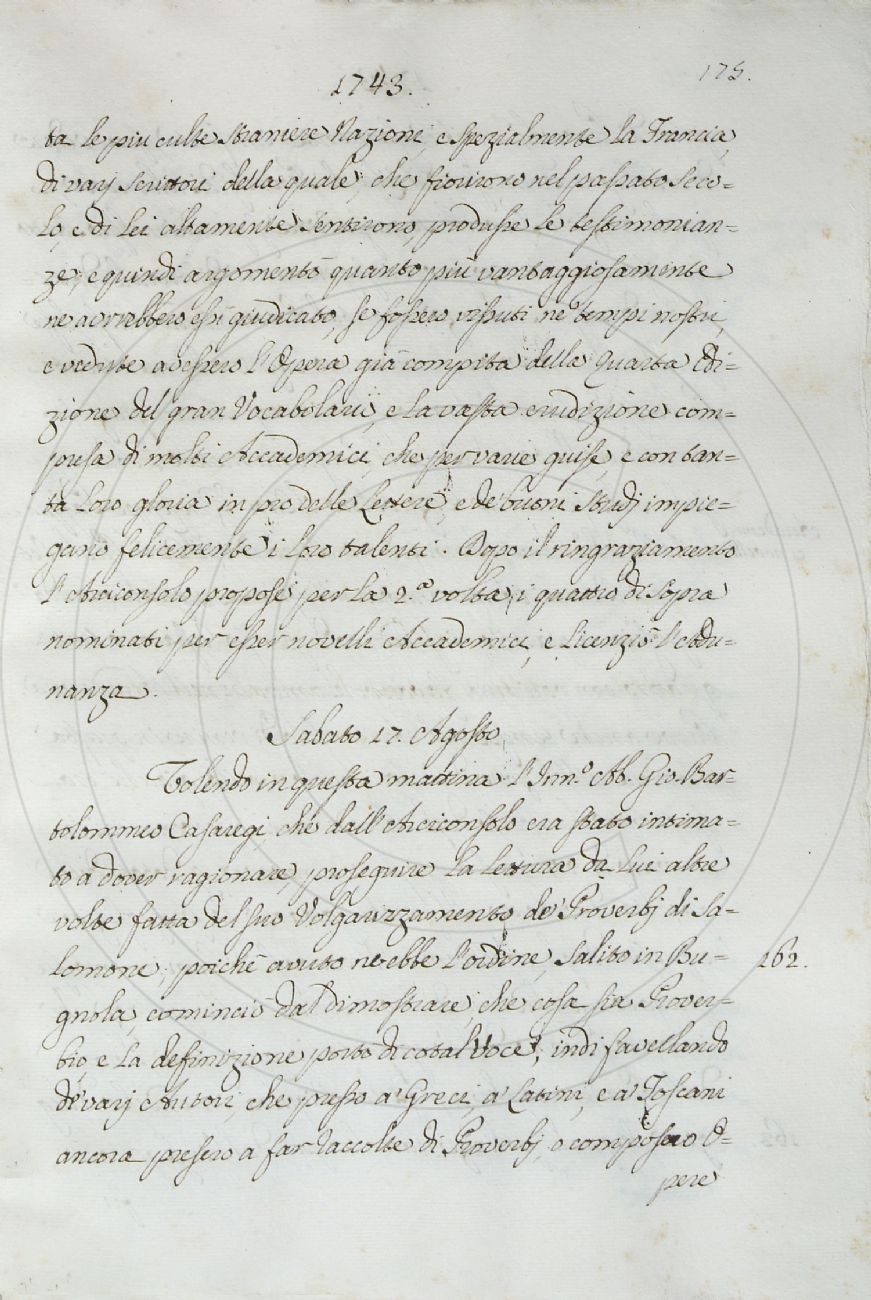 1743.
175.
ta le più culte straniere Nazioni, e spezialmente la Francia,
di varj scrittori della quale, che fiorirono nel passato seco=
lo, e di lei altamente sentirono, produsse le testimonian=
ze; e quindi argomentò quanto più vantaggiosamente
ne avrebbero essi giudicato, se fossero vissuti ne' tempi nostri,
e vedute avessero l'Opera già compita della Quarta Edi=
zione del gran Vocabolario, e la vasta erudizione com=
presa di molti Accademici, che per varie guise, e con tan=
ta loro gloria in pro delle Lettere, e de' buoni studj impie=
gano felicemente i loro talenti. Dopo il ringraziamento
l'Arciconsolo propose per la 2.a volta i quattro di sopra
nominati per esser novelli Accademici, e licenziò l'Adu=
nanza.
Sabato 17. Agosto,
Volendo in questa mattina l'Inn.o Ab. Gio. Bar=
tolommeo Casaregi, che dall'Arciconsolo era stato intima=
to a dover ragionare, proseguire la lettura da lui altre
volte fatta del suo Volgarizzamento de' Proverbj di Sa=
lomone, poichè avuto ne ebbe l'ordine, salito in Bu=
162.
gnola, cominciò dal dimostrare, che cosa sia Prover=
bio, e la definizione portò di cotal Voce; indi favellando
de' varj Autori, che presso a' Greci, a' Latini, e a' Toscani
ancora presero a far raccolte di Proverbj, o composero O=
pere